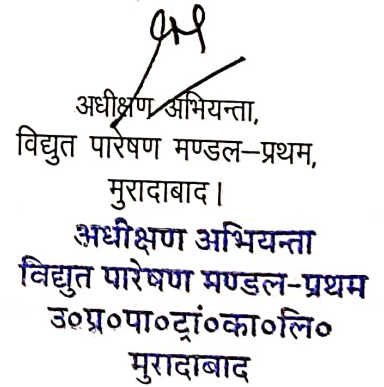 अधीक्षण अभियन्ता,
विद्युत पारेषण मण्डल–प्रथम,
मुरादाबाद।
अधीक्षण अभियन्ता
विद्युत पारेषण मण्डल-प्रथम
उ०प्र०पा०ट्रां०का०लि०
मुरादाबाद